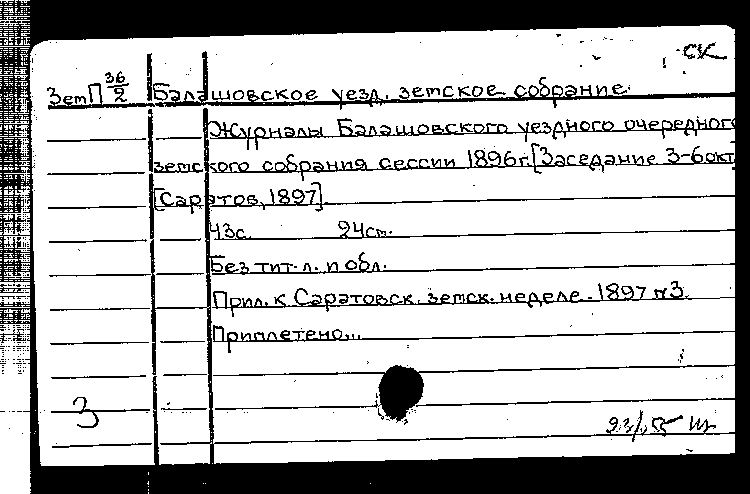 СК
ЗемП 36/2 Балашовское уезд. земское собрание.
Журналы Балашовского уездного очередного
земского собрания сессии 1896г. [Заседание 3-6окт]
[Саратов, 1897].
43с. 24см.
Без тит. л. и обл.
Прил. к Саратовск. земск. неделе. 1897 №3.
Приплетено...
3